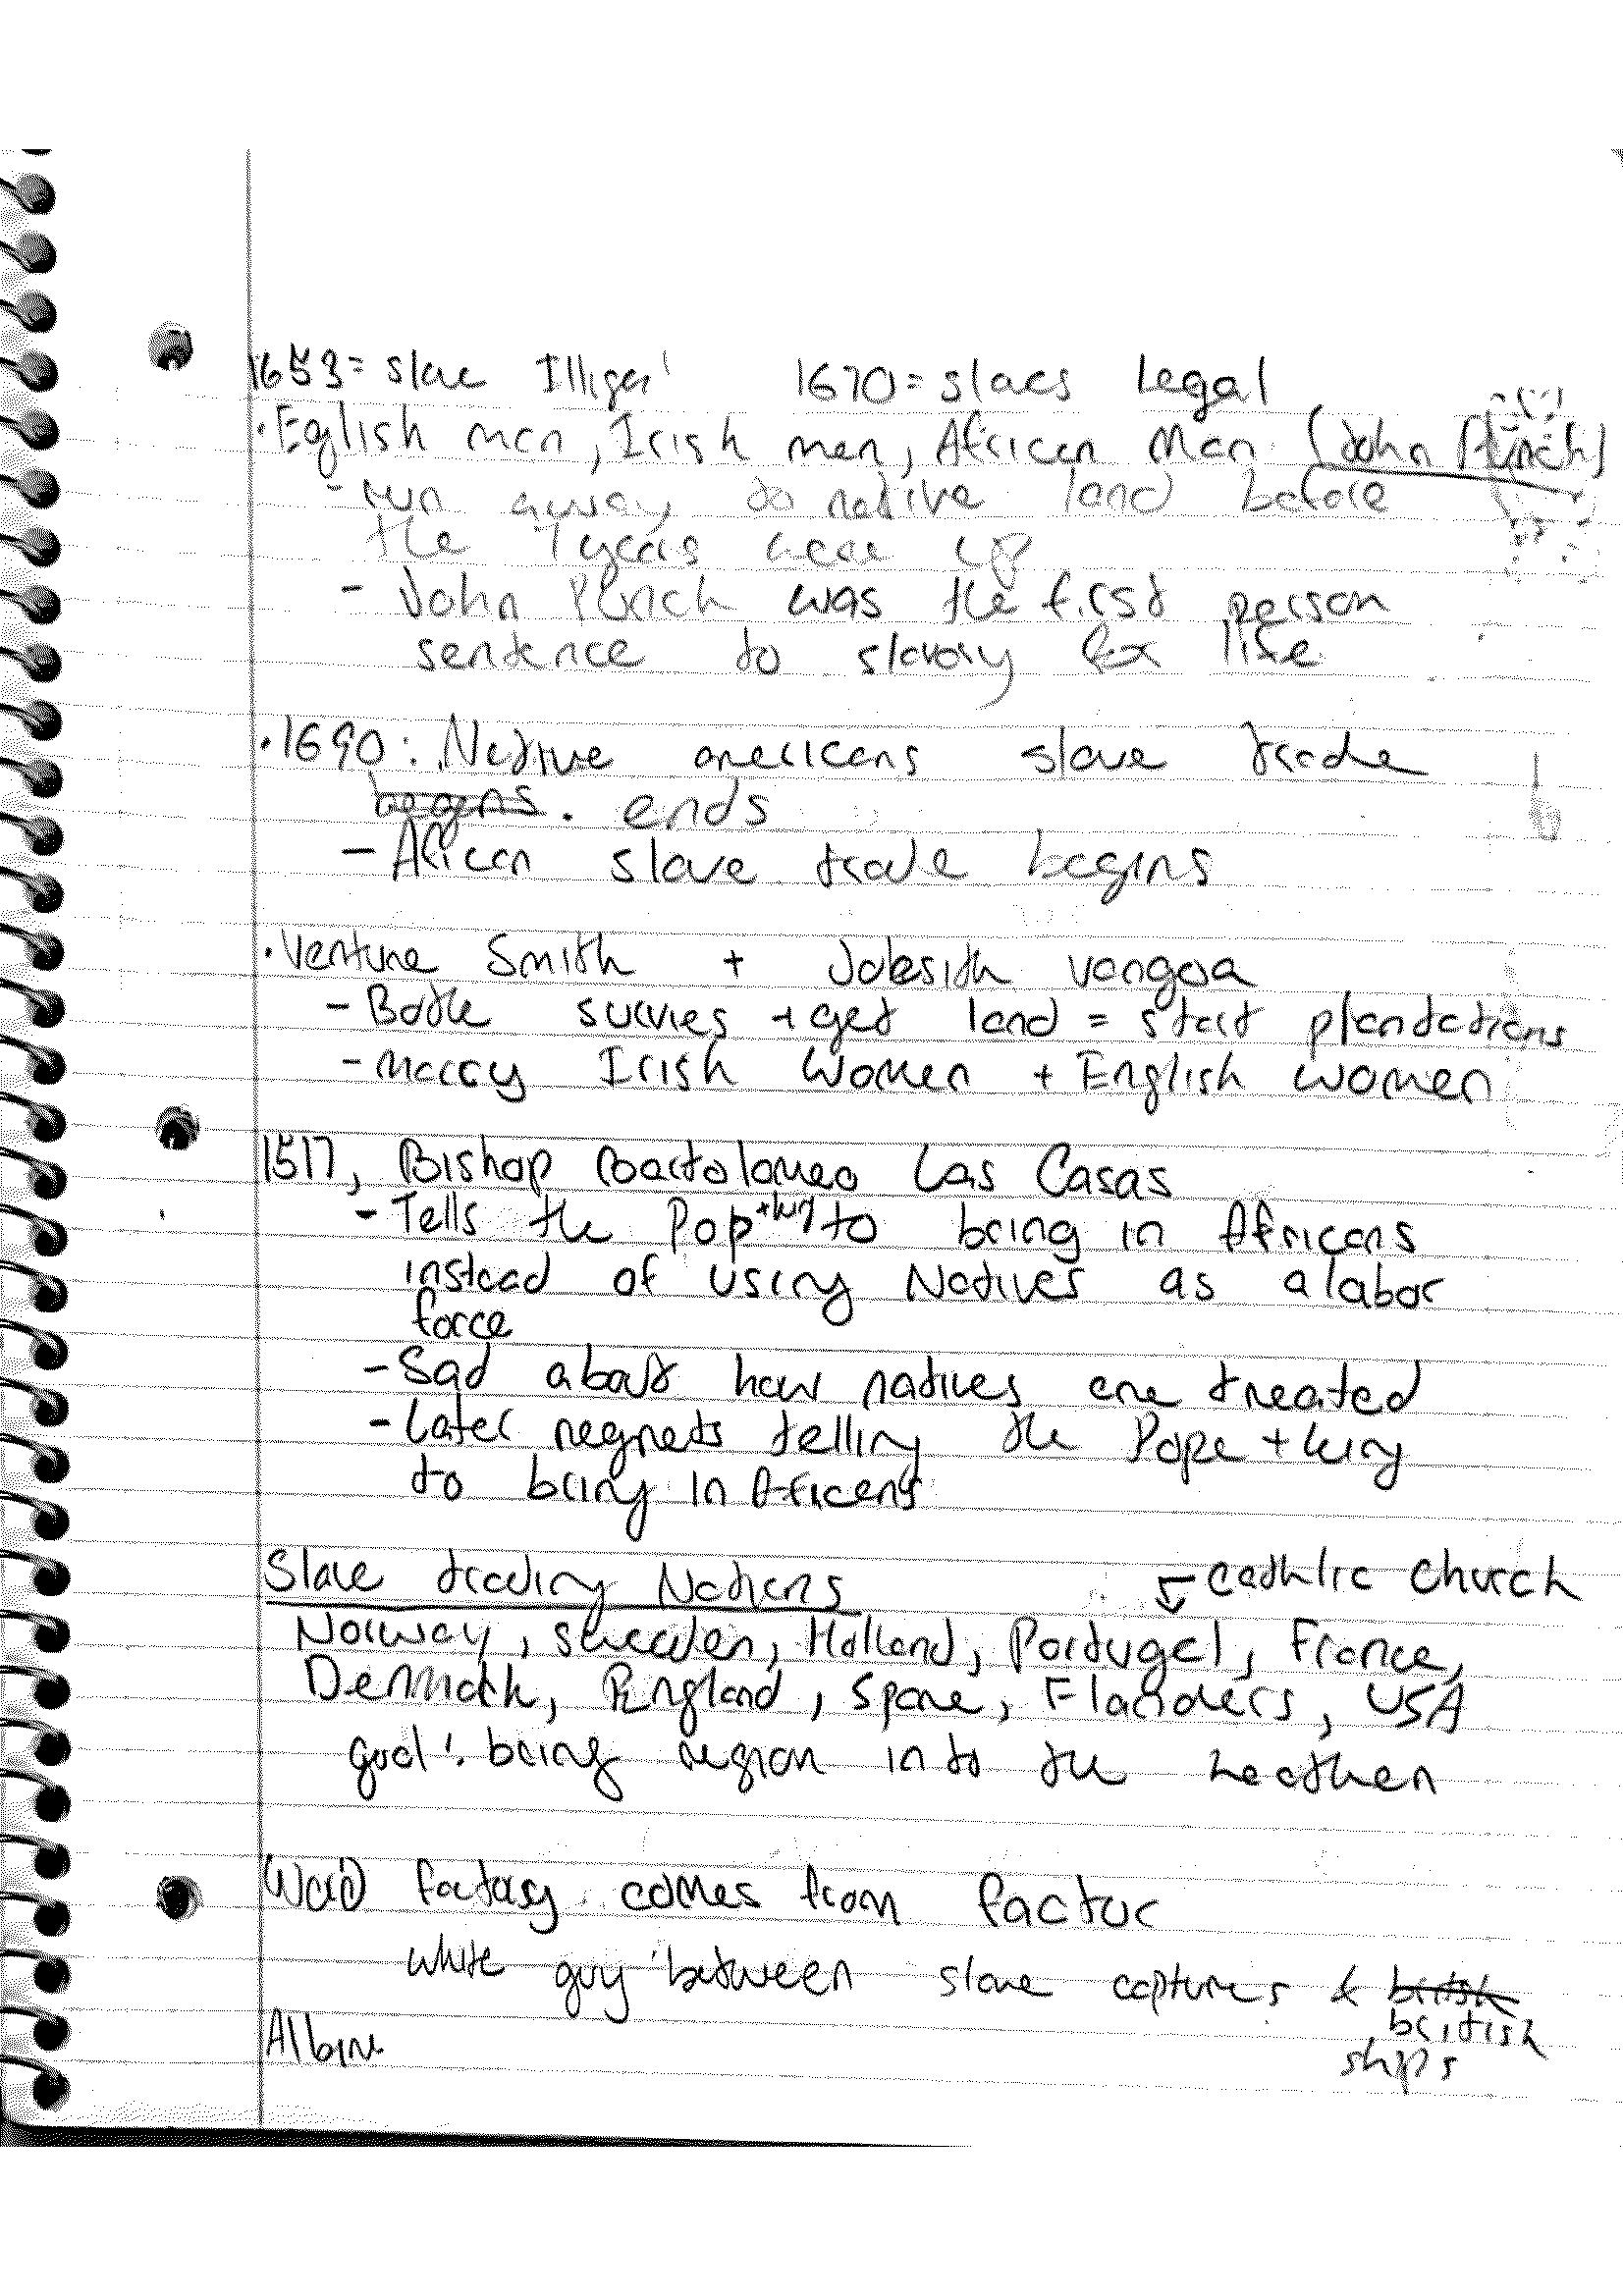 1653= slae Illigal 1670= slaes Legal
·Eglish men, Irish men, African Men (John Punch)
- run away to native land before
the 7 years were up
- John Punch was the first person
sentence to slavory for life
·1690: Native americans slave trade
begens. ends
- African slave trade begins
·Venture Smith + vangoa
- Bothe survies + get land = start plantations
- Marry Irish Women + English women
1517, Bishop Bartolomeo Las Casas
- Tells the Pop +king to bring in Africans
instead of using Natives as a labor
force
- Sad about how natives are treated
- Later regrets telling the Pope + king
to bring in Africans
Slave trading Nations ← Cathlic Church
Norway, Sweeden, Holland, Portugal, France,
Denmark, England, Spane, Flanders, USA
goal: bring region into the heathen
Word factory comes from factor
white guy between slave captures & british
british
ships